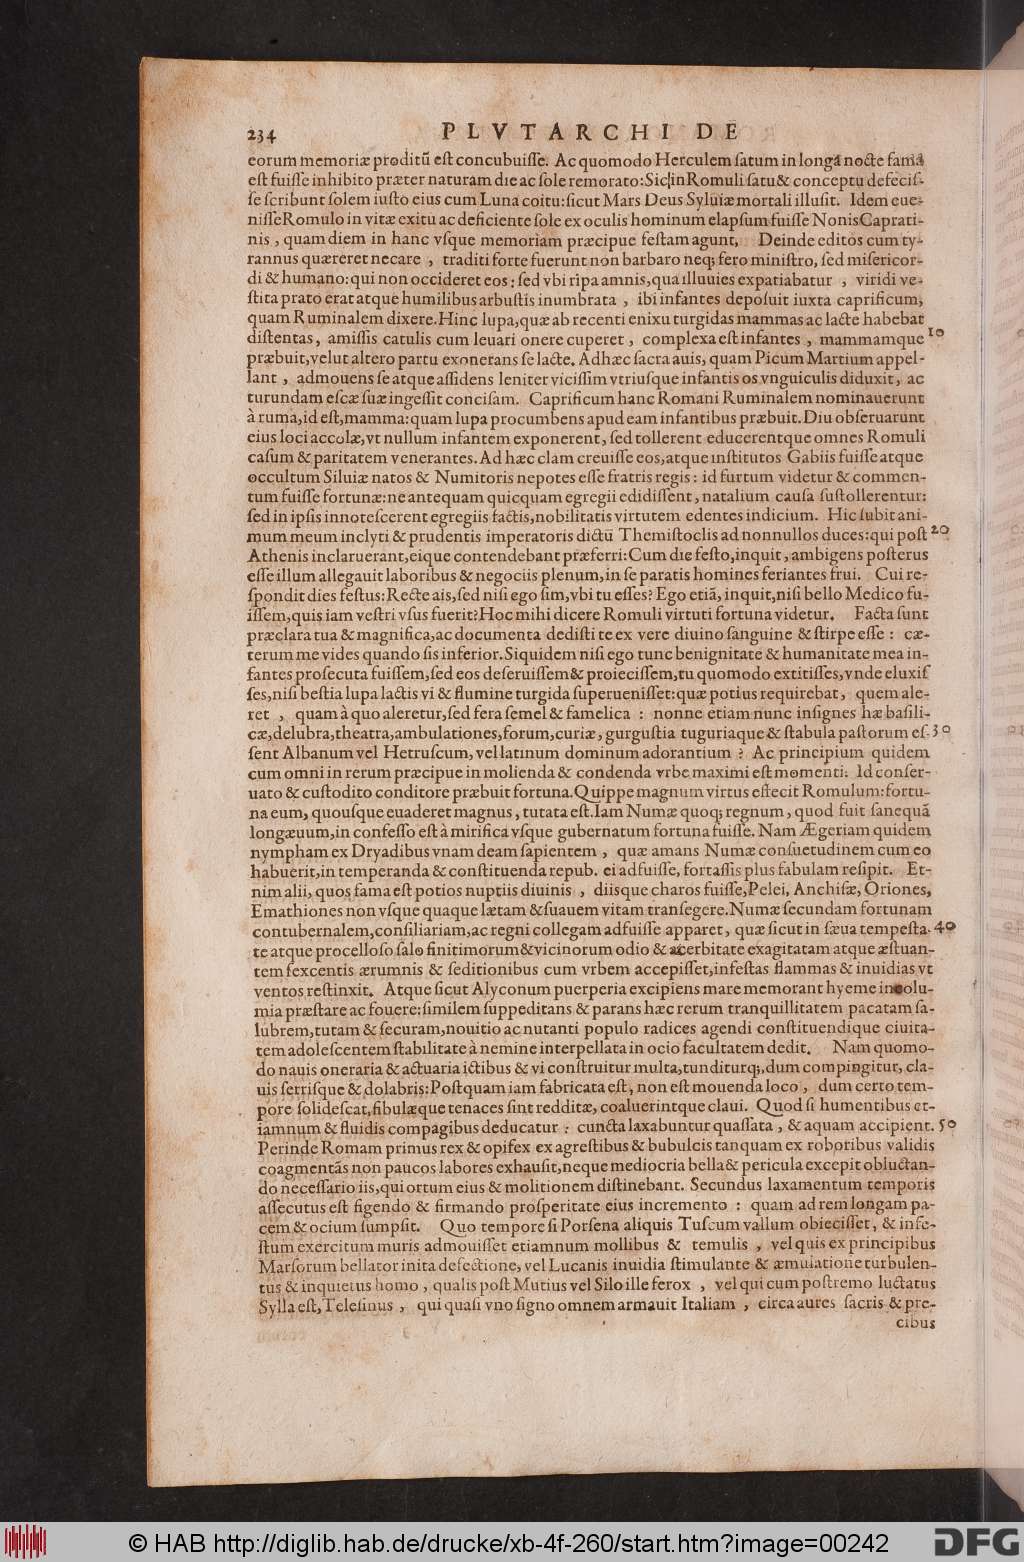 234 PLVTARCHI DE
eorum memoriæ proditũ est concubuiſſe. Ac quomodo Herculem ſatum in longa nocte fama
eſt fuiſſe inhibito præter naturam die ac ſole remorato: Sic in Romuli ſatu & conceptu defeciſ-
ſe ſcribunt ſolem iuſto eius cum Luna coitu: ſicut Mars Deus Syluiæ mortali illuſit. Idem eue-
niſſe Romulo in vitæ exitu ac deficiente ſole ex oculis hominum elapſum fuiſſe Nonis Caprati-
nis, quam diem in hanc vſque memoriam præcipue feſtam agunt. Deinde editos cum ty-
rannus quæreret necare, traditi forte fuerunt non barbaro neq; fero miniſtro, ſed miſericor-
di & humano: qui non occideret eos: ſed vbi ripa amnis, qua illuuies expatiabatur, viridi ve-
ſtita prato erat atque humilibus arbuſtis inumbrata, ibi infantes depoſuit iuxta caprificum,
quam Ruminalem dixere. Hinc lupa, quæ ab recenti enixu turgidas mammas ac lacte habebat
diſtentas, amiſſis catulis cum leuari onere cuperet, complexa eſt infantes, mammamque 10
præbuit, velut altero partu exonerans ſe lacte. Ad hæc ſacra auis, quam Picum Martium appel-
lant, admouens ſe atque aſſidens leniter viciſſim vtriuſque infantis os vnguiculis diduxit, ac
turundam eſcæ ſuæ ingeſſit conciſam. Caprificum hanc Romani Ruminalem nominauerunt
à ruma, id eſt, mamma: quam lupa procumbens apud eam infantibus præbuit. Diu obſeruarunt
eius loci accolæ, vt nullum infantem exponerent, ſed tollerent educerentque omnes Romuli
caſum & paritatem venerantes. Ad hæc clam creuiſſe eos, atque inſtitutos Gabiis fuiſſe atque
occultum Siluiæ natos & Numitoris nepotes eſſe fratris regis: id furtum videtur & commen-
tum fuiſſe fortunæ: ne antequam quicquam egregii edidiſſent, natalium cauſa ſuſtollerentur:
ſed in ipſis innoteſcerent egregiis factis, nobilitatis virtutem edentes indicium. Hic ſubit ani-
mum meum inclyti & prudentis imperatoris dictũ Themiſtoclis ad nonnullos duces: qui poſt 20
Athenis inclaruerant, eique contendebant præferri: Cum die feſto, inquit, ambigens poſterus
eſſe illum allegauit laboribus & negociis plenum, in ſe paratis homines feriantes frui. Cui re-
ſpondit dies feſtus: Recte ais, ſed niſi ego ſim, vbi tu eſſes? Ego etiã, inquit, niſi bello Medico fu-
iſſem, quis iam veſtri vſus fuerit? Hoc mihi dicere Romuli virtuti fortuna videtur. Facta ſunt
præclara tua & magnifica, ac documenta dediſti te ex vere diuino ſanguine & ſtirpe eſſe: cæ-
terum me vides quando ſis inferior. Siquidem niſi ego tunc benignitate & humanitate mea in-
fantes proſecuta fuiſſem, ſed eos deſeruiſſem & proieciſſem, tu quomodo extitiſſes, vnde eluxiſ
ſes, niſi beſtia lupa lactis vi & flumine turgida ſuperueniſſet: quæ potius requirebat, quem ale-
ret, quam à quo aleretur, ſed fera ſemel & famelica: nonne etiam nunc inſignes hæ baſili-
cæ, delubra, theatra, ambulationes, forum, curiæ, gurguſtia tuguriaque & ſtabula paſtorum eſ- 30
ſent Albanum vel Hetruſcum, vel latinum dominum adorantium? Ac principium quidem
cum omni in rerum præcipue in molienda & condenda vrbe maximi eſt momenti. Id conſer-
uato & cuſtodito conditore præbuit fortuna. Quippe magnum virtus effecit Romulum: fortu-
na eum, quouſque euaderet magnus, tutata eſt. Iam Numæ quoq; regnum, quod fuit ſanequã
longæuum, in confeſſo eſt à mirifica vſque gubernatum fortuna fuiſſe. Nam Ægeriam quidem
nympham ex Dryadibus vnam deam ſapientem, quæ amans Numæ conſuetudinem cum eo
habuerit, in temperanda & conſtituenda repub. ei adfuiſſe, fortaſſis plus fabulam reſipit. Et-
nim alii, quos fama eſt potios nuptiis diuinis, diisque charos fuiſſe, Pelei, Anchiſæ, Oriones,
Emathiones non vſque quaque lætam & ſuauem vitam tranſegere. Numæ ſecundam fortunam
contubernalem, conſiliariam, ac regni collegam adfuiſſe apparet, quæ ſicut in ſæua tempeſta- 40
te atque procelloſo ſalo finitimorum & vicinorum odio & acerbitate exagitatam atque æſtuan-
tem ſexcentis ærumnis & ſeditionibus cum vrbem accepiſſet, infeſtas flammas & inuidias vt
ventos reſtinxit. Atque ſicut Alyconum puerperia excipiens mare memorant hyeme incolu-
mia præſtare ac fouere: ſimilem ſuppeditans & parans hæc rerum tranquillitatem pacatam ſa-
lubrem, tutam & ſecuram, nouitio ac nutanti populo radices agendi conſtituendique ciuita-
tem adoleſcentem ſtabilitate à nemine interpellata in ocio facultatem dedit. Nam quomo-
do nauis oneraria & actuaria ictibus & vi conſtruitur multa, tunditurq;, dum compingitur, cla-
uis ferriſque & dolabris: Poſtquam iam fabricata eſt, non eſt mouenda loco, dum certo tem-
pore ſolideſcat, fibulæque tenaces ſint redditæ, coaluerintque claui. Quod ſi humentibus et-
iamnum & fluidis compagibus deducatur: cuncta laxabuntur quaſſata, & aquam accipient. 50
Perinde Romam primus rex & opifex ex agreſtibus & bubulcis tanquam ex roboribus validis
coagmentãs non paucos labores exhauſit, neque mediocria bella & pericula excepit obluctan-
do neceſſario iis, qui ortum eius & molitionem diſtinebant. Secundus laxamentum temporis
aſſecutus eſt figendo & firmando proſperitate eius incremento: quam ad rem longam pa-
cem & ocium ſumpſit. Quo tempore ſi Porſena aliquis Tuſcum vallum obieciſſet, & infe-
ſtum exercitum muris admouiſſet etiamnum mollibus & temulis, vel quis ex principibus
Marſorum bellator inita defectione, vel Lucanis inuidia ſtimulante & æmulatione turbulen-
tus & inquietus homo, qualis poſt Mutius vel Silo ille ferox, vel qui cum poſtremo luctatus
Sylla eſt, Teleſinus, qui quaſi vno ſigno omnem armauit Italiam, circa aures ſacris & pre-
cibus
© HAB http://diglib.hab.de/drucke/xb-4f-260/start.htm?image=00242
DFG